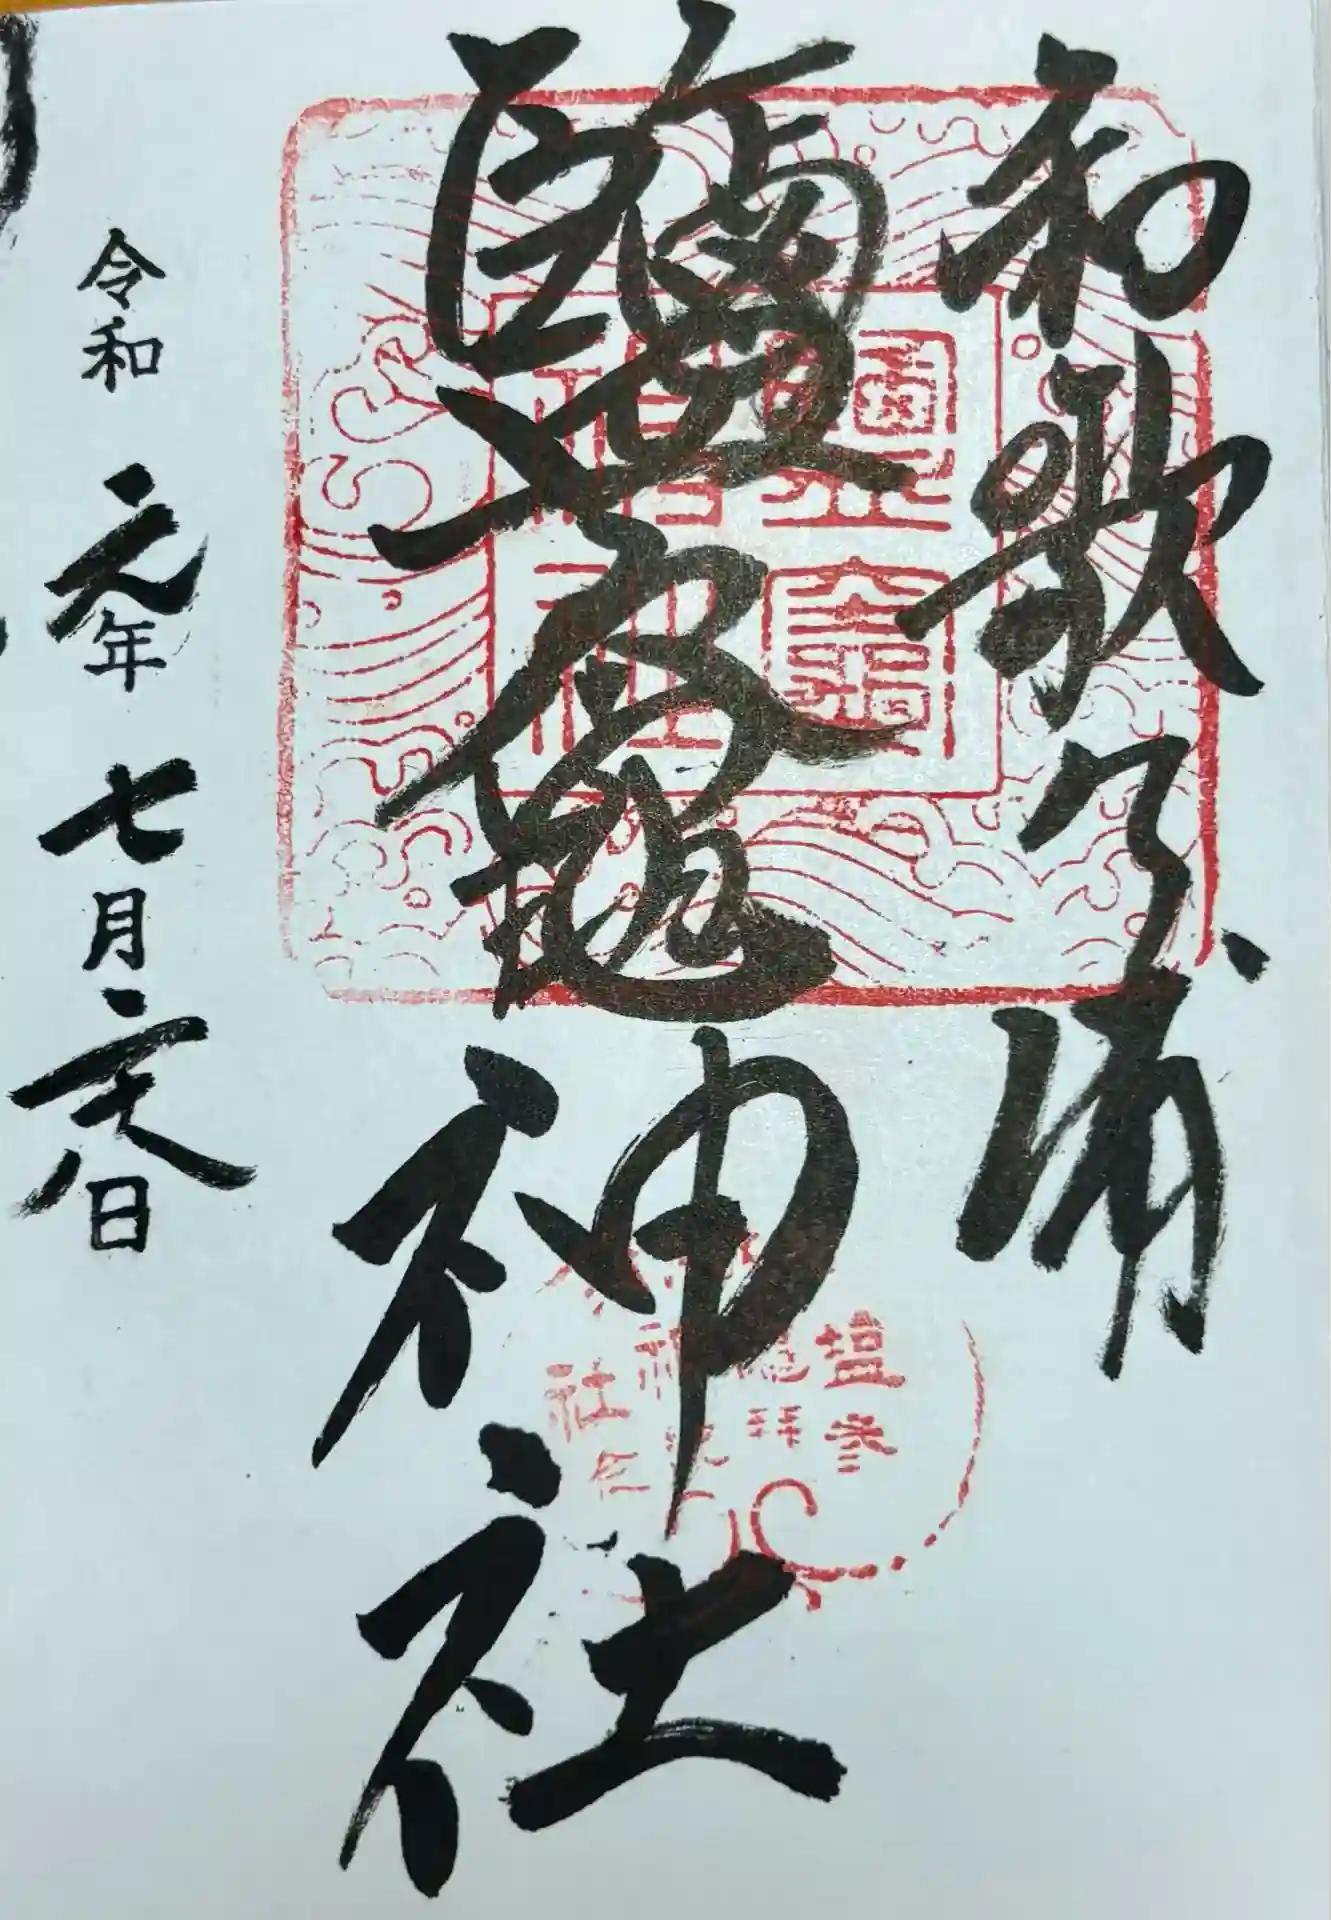 和歌之浦
鹽竈神社
令和元年七月二十八日
鹽竈神社
塩竈神社
参拝記念